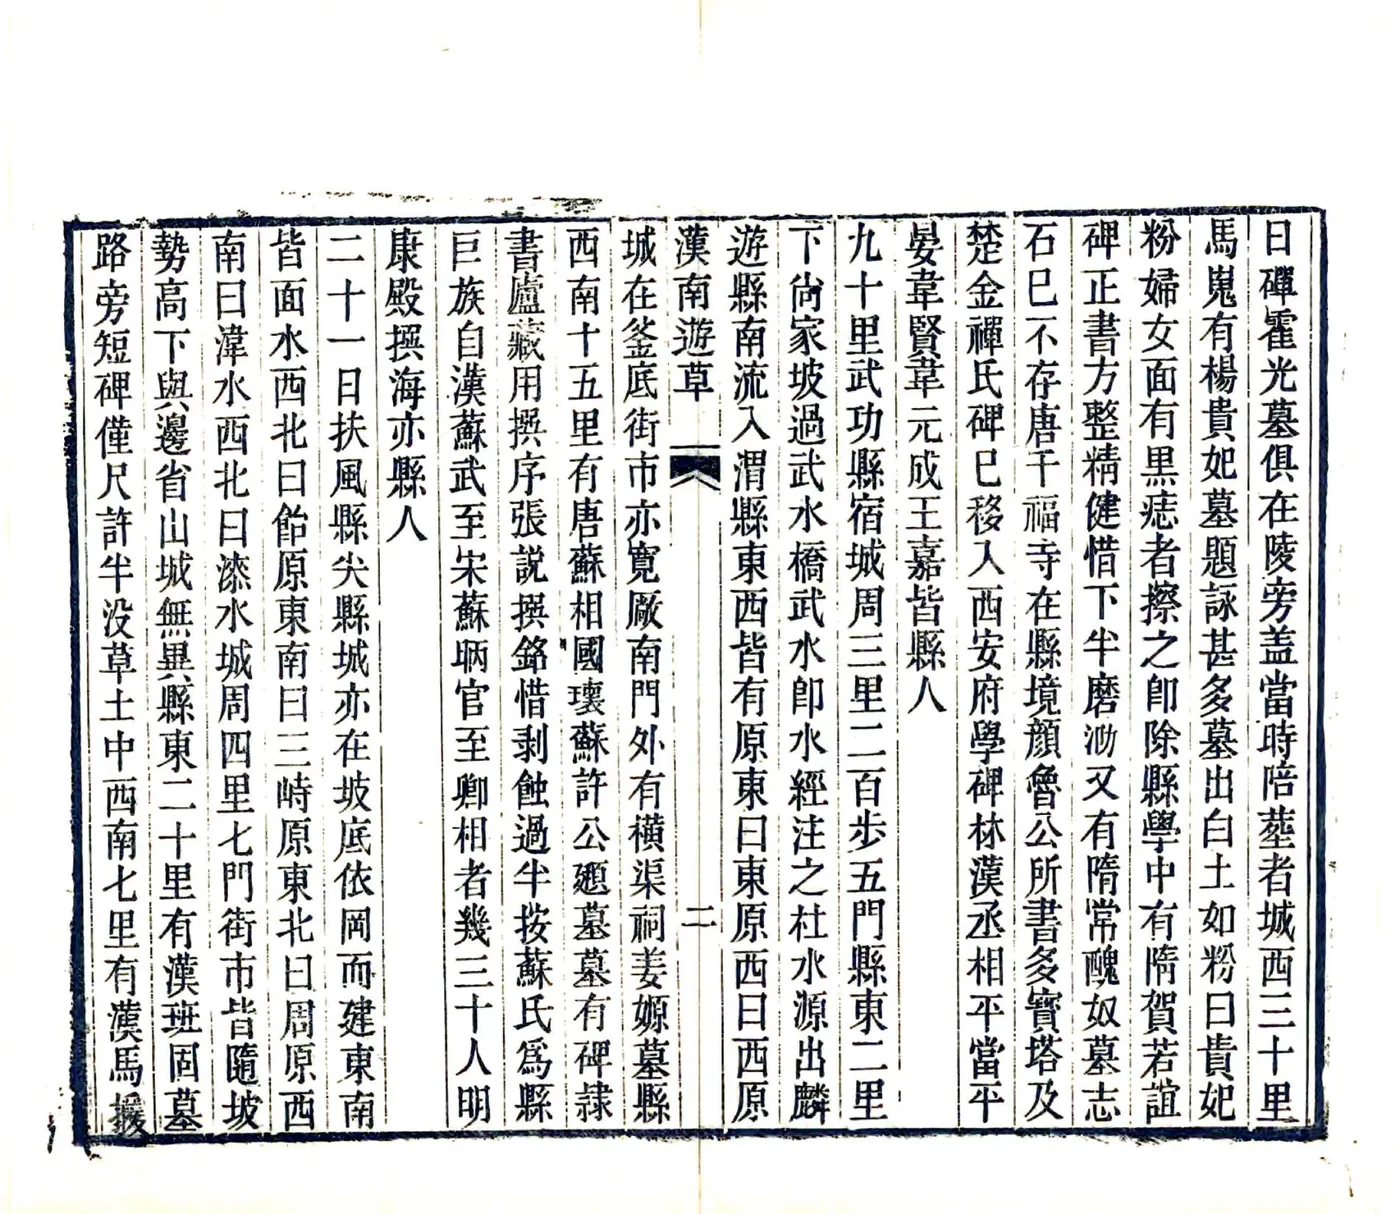 日磾霍光墓俱在陵旁盖當時陪塟者城西三十里
馬嵬有楊貴妃墓題詠甚多墓出白土如粉曰貴妃
粉婦女面有黑痣者擦之卽除縣學中有隋賀若誼
碑正書方整精健惜下半磨泐又有隋常醜奴墓志
石巳不存唐千福寺在縣境顏魯公所書多寶塔及
楚金禪氏碑巳移入西安府學碑林漢丞相平當平
晏韋賢韋元成王嘉皆縣人
九十里武功縣宿城周三里二百步五門縣東二里
下尙家坡過武水橋武水卽水經注之杜水源出麟
遊縣南流入渭縣東西皆有原東曰東原西曰西原
漢南遊草 二
城在釜底街市亦寬厰南門外有橫渠祠姜嫄墓縣
西南十五里有唐蘇相國瓌蘇許公頲墓墓有碑隷
書盧藏用撰序張說撰銘惜剥蝕過半按蘇氏爲縣
巨族自漢蘇武至宋蘇昞官至卿相者幾三十人明
康殿撰海亦縣人
二十一日扶風縣尖縣城亦在坡底依岡而建東南
皆面水西北曰飴原東南曰三畤原東北曰周原西
南曰湋水西北曰漆水城周四里七門街市皆隨坡
勢高下與邊省山城無異縣東二十里有漢班固墓
路旁短碑僅尺許半没草土中西南七里有漢馬援